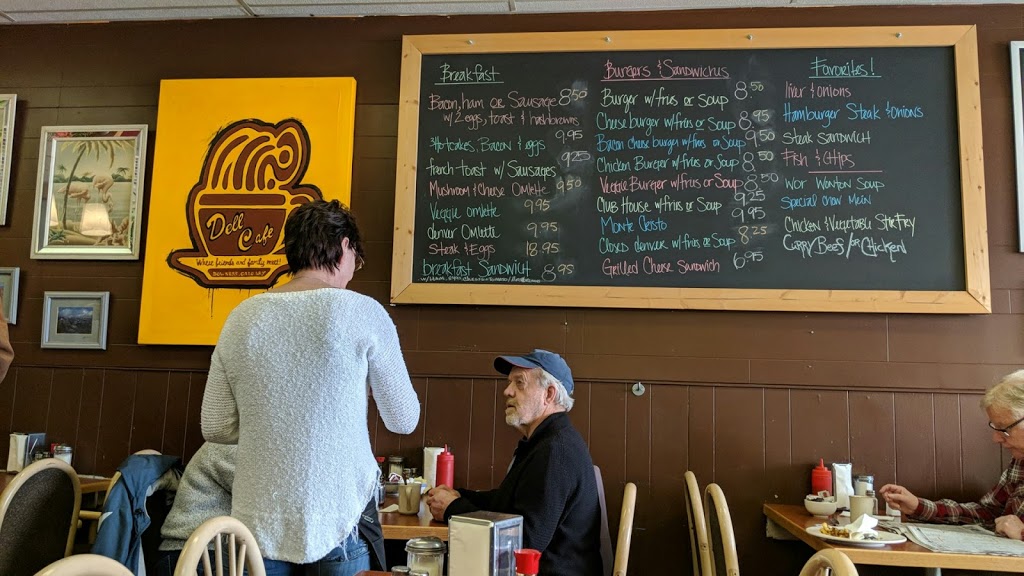 Deli Cafe
Where friends and family meet!
Breakfast
Bacon, ham or Sausage 8.50
w/2eggs, toast & hashbrowns
Hotcakes, Bacon & eggs 9.95
french toast w/ Sausages 9.25
Mushroom & Cheese Omlette 9.50
Veggie omlette 9.95
denver Omlette 9.95
Steak & Eggs 18.95
breakfast Sandwich 8.95
Burgers & Sandwiches
Burger w/fries or Soup 8.50
Cheese burger w/fries or Soup 8.95
Bacon cheese burger w/fries or Soup 9.50
Chicken Burger w/fries or Soup 8.50
Veggie Burger w/fries or Soup 8.50
Club House w/fries or Soup 9.25
Monte Cristo 9.95
Closed denver w/fries or Soup 8.25
Grilled Cheese Sandwich 6.95
Favorites!
liver & onions
Hamburger Steak & onions
Steak Sandwich
Fish & Chips
Wor Wonton Soup
Special Chow Mein
Chicken & Vegetable Stir Fry
Curry Beef / or Chicken